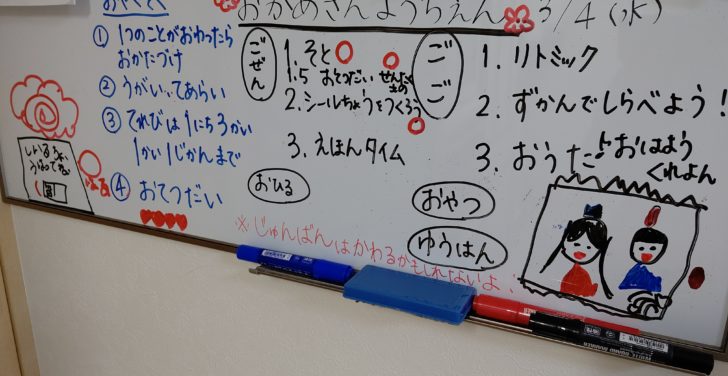 おやくそく
① 1つのことがおわったら
おかたづけ
② うがい、てあらい
③ てれびは1にち3かい
1かい1じかんまで
④ おてつだい
おかめさんようちえん 3/4(水)
ごぜん
1. そと
1.5 おてつだい せんたくもの
2. シールちょうをつくろう
3. えほんタイム
おひる
ごご
1. リトミック
2. ずかんでしらべよう!
3. おうた♪おはよう
くれよん
おやつ
ゆうはん
※じゅんばんはかわるかもしれないよ!